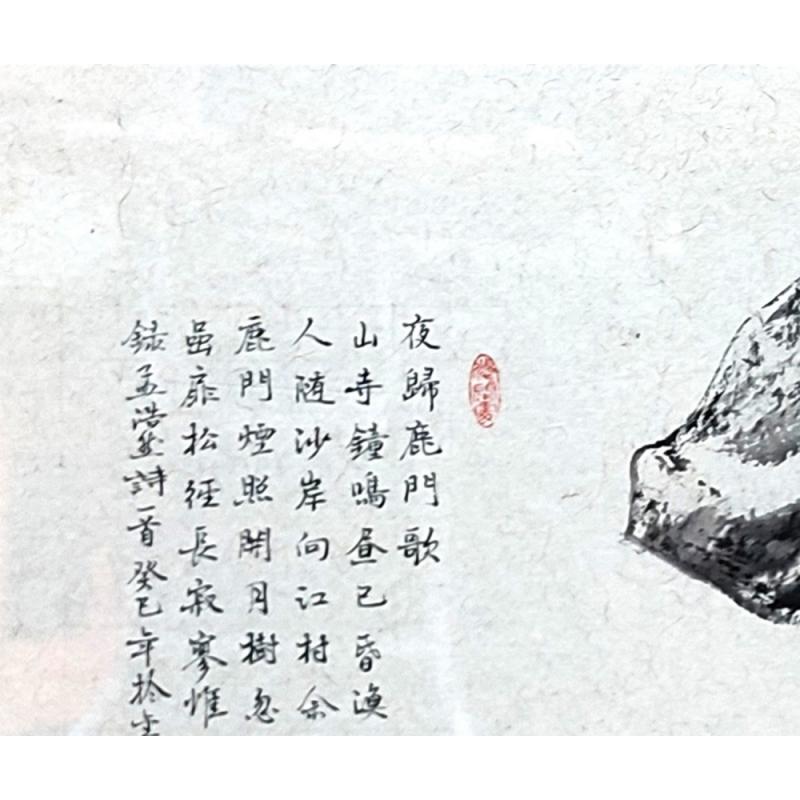 夜歸鹿門歌
山寺鐘鳴昼已昏漁
人随沙岸向江村余
鹿門煙照開月樹忽
嵒扉松徑長寂寥惟
録孟浩然詩一首癸巳年於